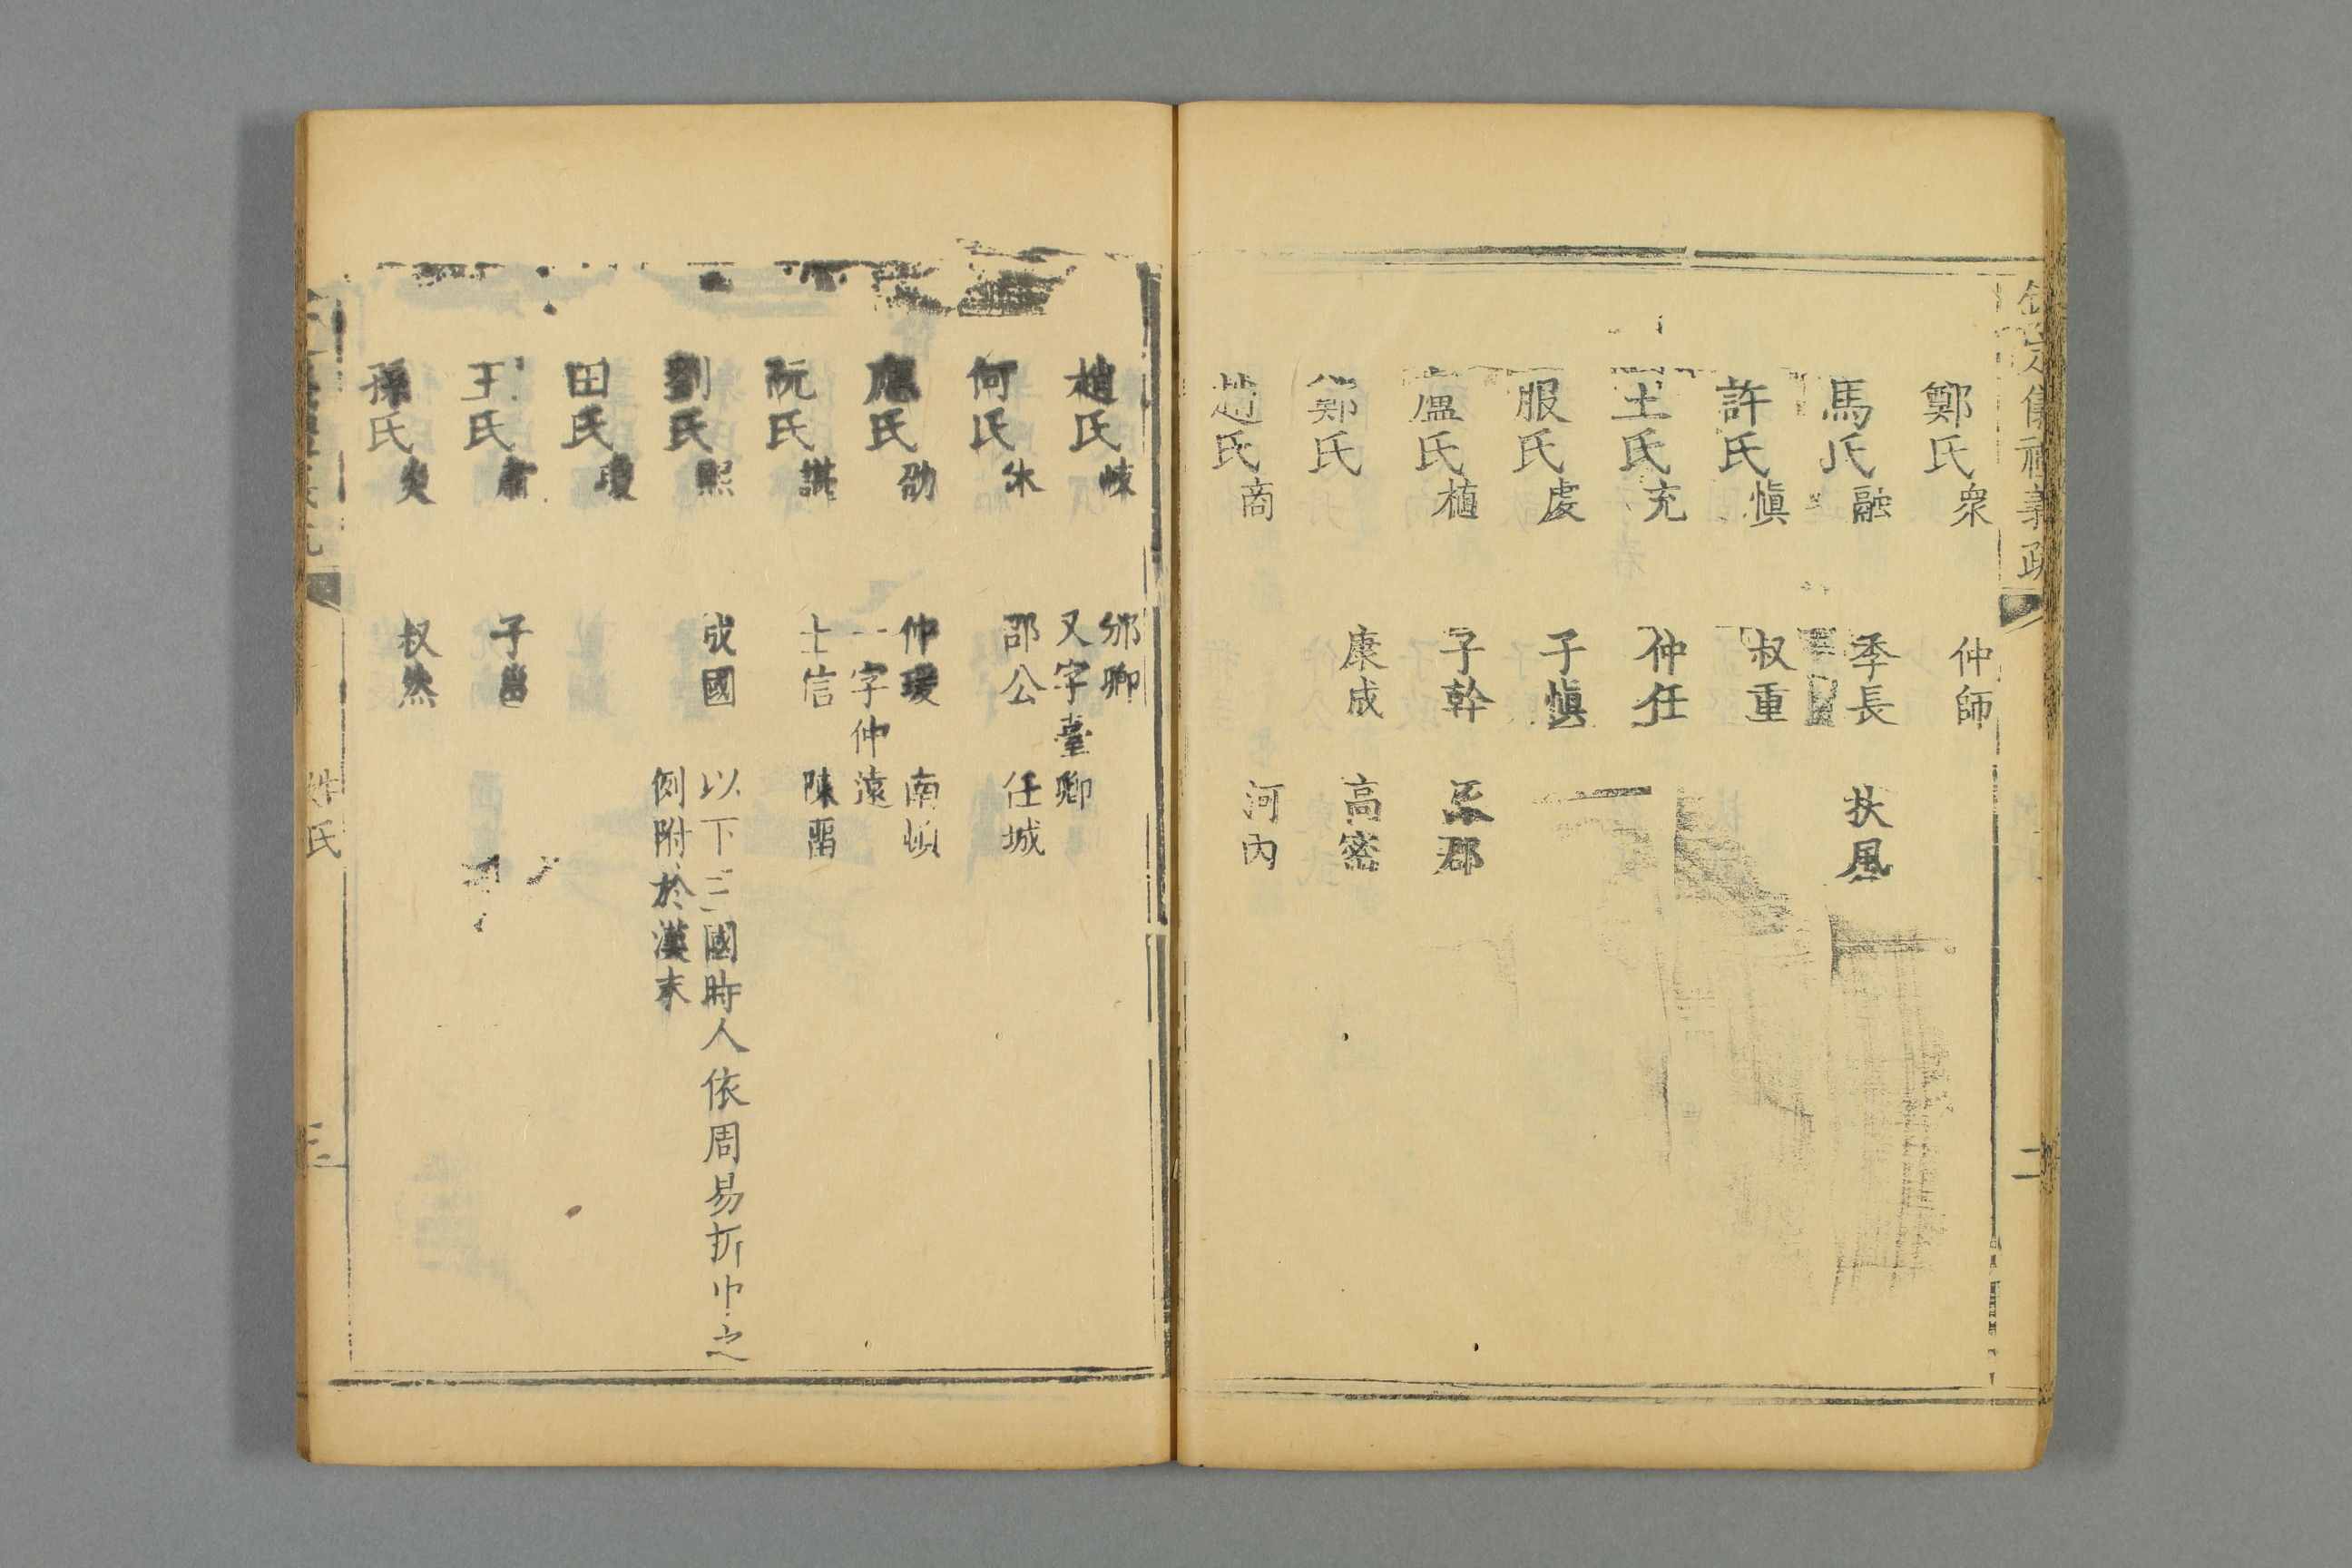 欽定儀禮義疏 二
鄭氏衆 仲師
馬氏融 季長 扶風
許氏慎 叔重
王氏充 仲任
服氏虔 子慎
盧氏植 子幹 涿郡
鄭氏 康成 高密
趙氏商 河內
趙氏岐 邠卿
又字臺卿
何氏休 邵公 任城
應氏劭 仲瑗 南頓
一字仲遠
阮氏諶 士信 陳畱
劉氏熙 成國 以下三國時人依周易折中之
例附於漢末
田氏瓊
王氏肅 子邕
孫氏炎 叔然
姓氏 三